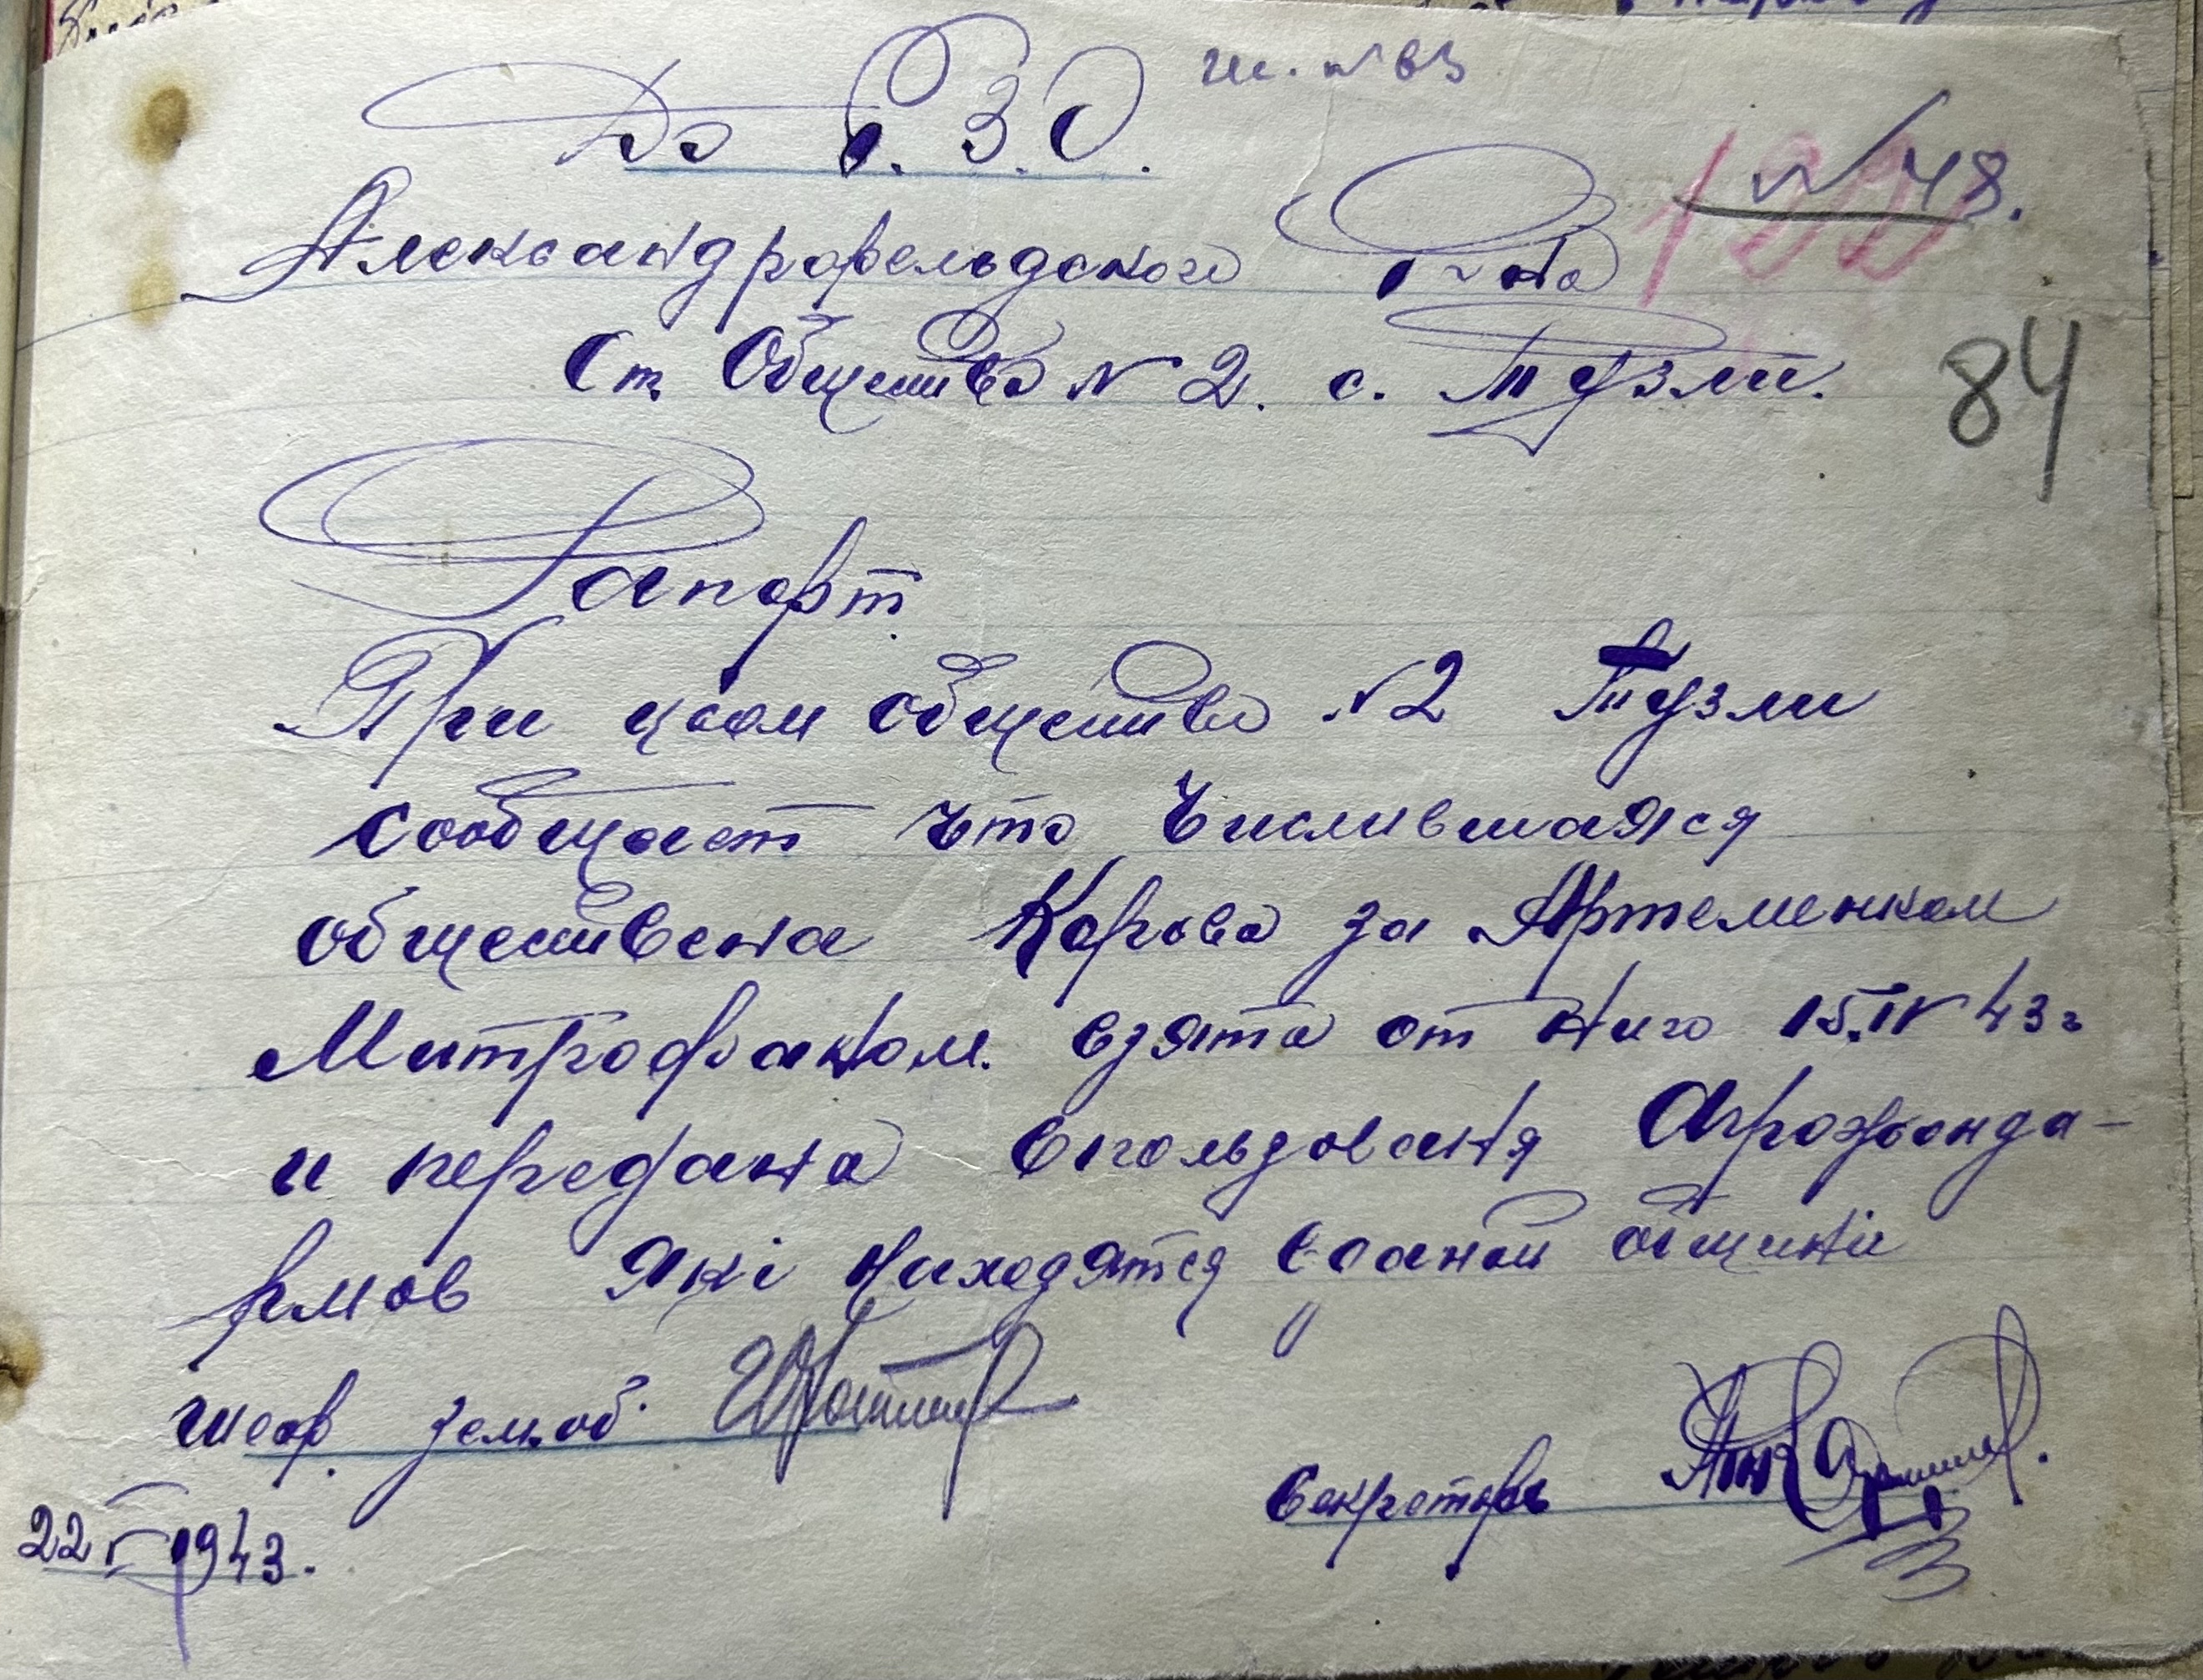 До Р.З.О.
№ 48.
Александрофельдского р-на
84
От Общества № 2. с. Тузли.
Рапорт
При цьом общество № 2 Тузли
сообщает что числившаяся
обществена Корова за Артеменком
Митрофаном. взята от него 15.IV 43 г
и передана впользованя Агрожанда-
рмов які находятся в даной общині
шеф. земоб.
Секретарь
22 V 1943.